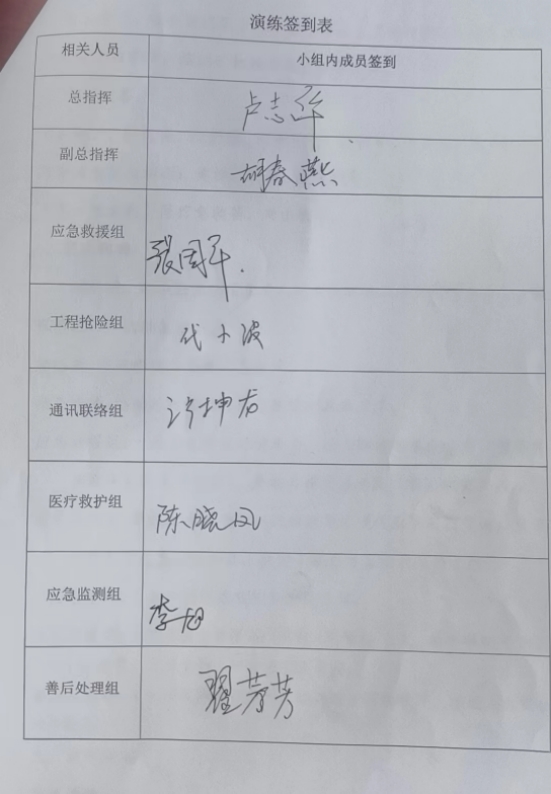 演练签到表
相关人员 小组内成员签到
总指挥 卢志华
副总指挥 胡春燕
应急救援组 张国平
工程抢险组 代小波
通讯联络组 许坤
医疗救护组 陈晓凤
应急监测组 李旭
善后处理组 翟芳芳